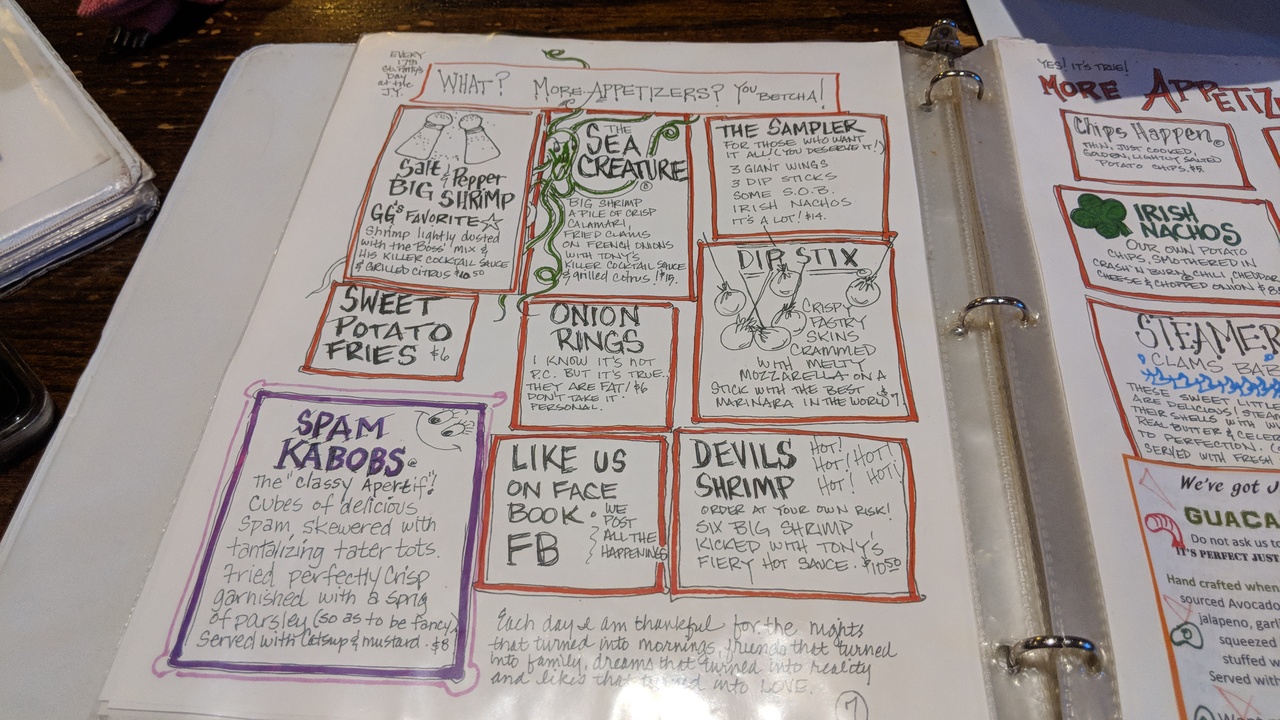 EVERY
17th
St. Patty's
Day
at the
J.Y.
WHAT? MORE APPETIZERS? YOU BETCHA!
Salt & Pepper
BIG SHRIMP
GG'S FAVORITE
Shrimp lightly dusted
with the Boss' mix &
HIS KILLER COCKTAIL SAUCE
& GRILLED CITRUS $10.50
THE
SEA
CREATURE
BIG SHRIMP
A PILE OF CRISP
CALAMARI,
FRIED CLAMS
ON FRENCH ONIONS
WITH TONY'S
KILLER COCKTAIL SAUCE
& grilled citrus! $15.
THE SAMPLER
FOR THOSE WHO WANT
IT ALL (YOU DESERVE IT!)
3 GIANT WINGS
3 DIP STICKS
SOME S.O.B.
IRISH NACHOS
IT'S A LOT! $14.
SWEET
POTATO
FRIES $6
ONION
RINGS
I KNOW IT'S NOT
P.C. BUT IT'S TRUE..
THEY ARE FAT! $6
DON'T TAKE IT
PERSONAL.
DIP STIX
CRISPY
PASTRY
SKINS
CRAMMED
WITH MELTY
MOZZARELLA ON A
STICK WITH THE BEST
MARINARA IN THE WORLD $7
SPAM
KABOBS
The "Classy Apertif"!
Cubes of delicious
Spam, skewered with
tantalizing tater tots.
Fried perfectly crisp
garnished with a sprig
of parsley (so as to be fancy)
Served with Catsup & mustard. $8
LIKE US
ON FACE
BOOK.
FB
WE
POST
ALL THE
HAPPENINGS
DEVILS
SHRIMP
HOT!
HOT! HOT!
HOT! HOT!
ORDER AT YOUR OWN RISK!
SIX BIG SHRIMP
KICKED WITH TONY'S
FIERY HOT SAUCE. $10.50
Each day I am thankful for the nights
that turned into mornings, friends that turned
into family, dreams that turned into reality
and likes that turned into LOVE.
7
YES! IT'S TRUE!
MORE
Chips Happen
THIN, JUST COOKED,
GOLDEN, LIGHTLY SALTED
POTATO CHIPS. $5.
IRISH
NACHOS
OUR OWN POTATO
CHIPS, SMOTHERED IN
CRASH 'N BURN CHILI, CHEDDAR
CHEESE & CHOPPED ONION
CLAMS
THESE SWEET
ARE DELICIOUS!
THEIR SHELLS WITH
REAL BUTTER &
TO PERFECTION.
SERVED WITH FRESH
We've got
Do not ask us to
IT'S PERFECT JUST
Hand crafted when
sourced
jalapeno,
squeezed
stuffed
Served with